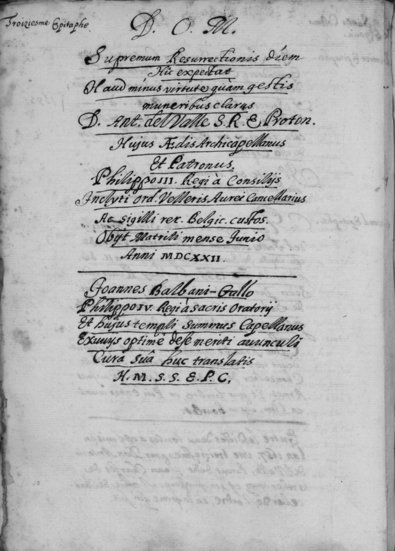 Troiziesme Epitaphe.
D. O. M.
Supremum Resurrectionis diem
Hic expectat
Haud minus virtute quàm gestis
muneribus clarus
D. Ant. del Valle S. R. E. Proton.
Hujus Ædis Archicapellanus
Et Patronus,
Philippo III. Regi à Consilijs
Inclyti ord. Velleris Aurei Cancellarius
Ac sigilli rer. Belgic. custos.
Obijt Matriti mense Junio
Anni MDCXXII.
Joannes Balbani-Gallo
Philippo IV. Regi a sacris Oratorij
Et hujus templi Summus Capellanus
Exuvijs optimè de se meriti avunculi
Cura Suâ huc translatis
H. M. S. S. E. P. C.